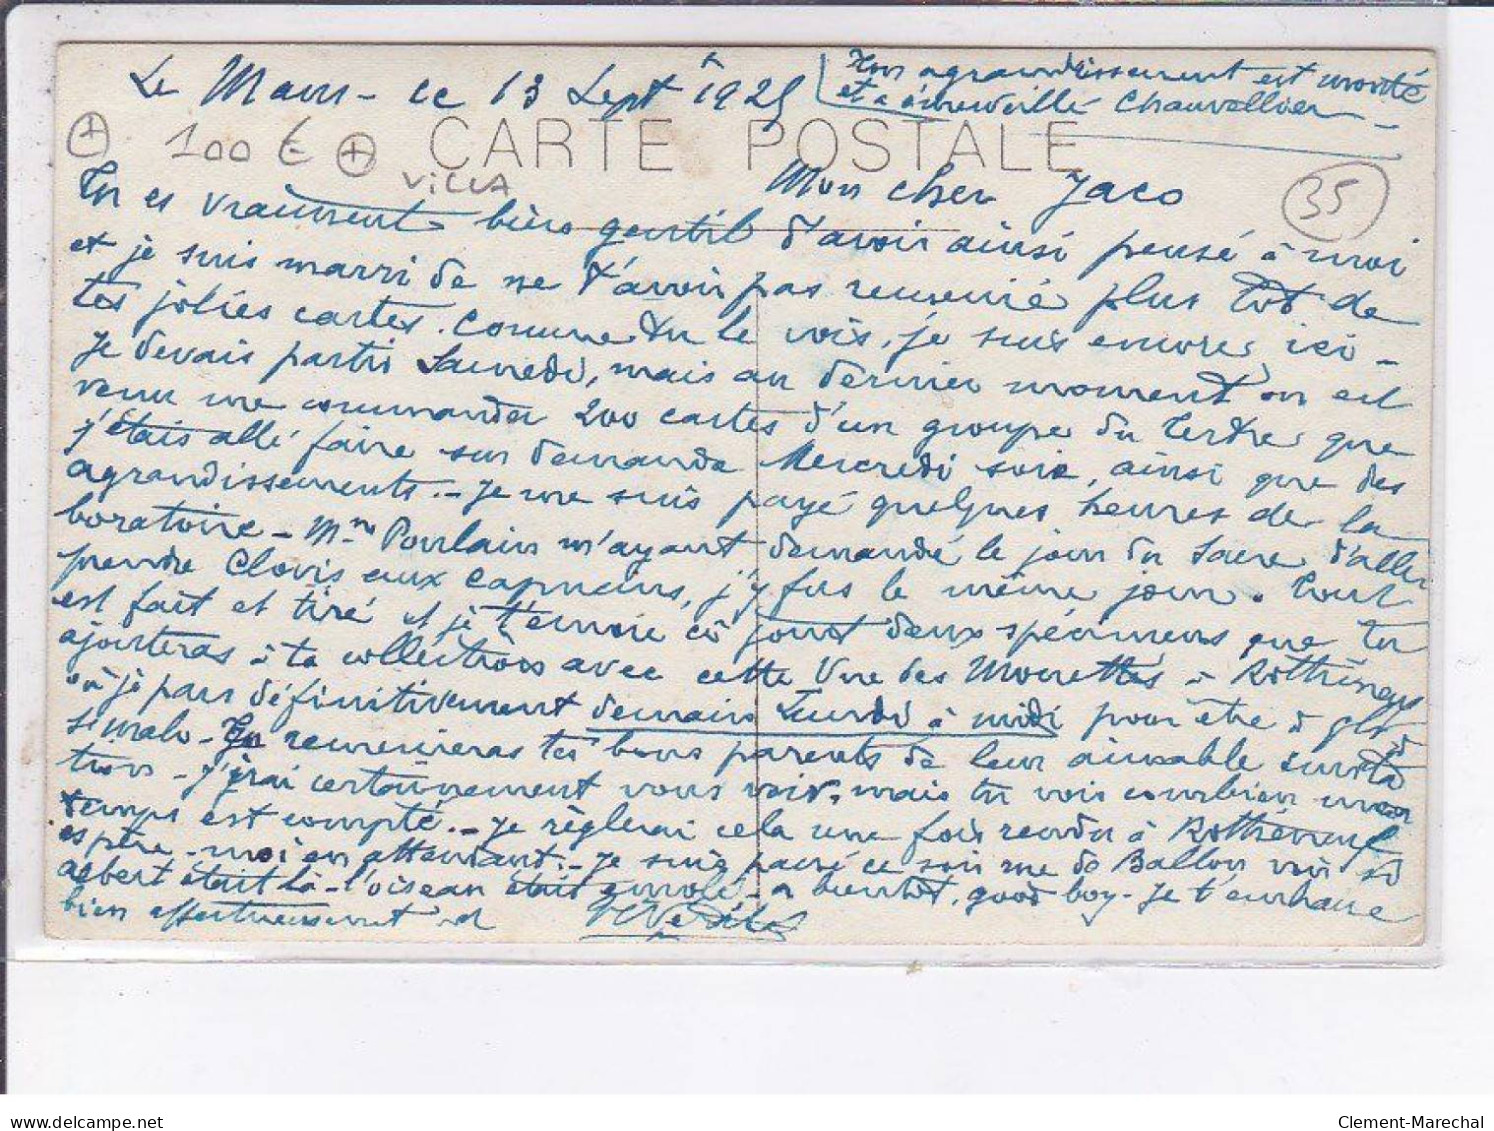 Le Mans - ce 13 Sept 1925
Ton agrandissement est monté
et a émerveillé Chauvellier
CARTE POSTALE
100 €
VILLA
35
Mon cher Jaco
Tu es vraiment bien gentil d'avoir ainsi pensé à moi
et je suis marri de ne t'avoir pas remercié plus tôt de
tes jolies cartes. Comme tu le vois, je suis encore ici -
Je devais partir Samedi, mais au dernier moment on est
venu me commander 200 cartes d'un groupe du Tertre que
j'étais allé faire sur demande Mercredi soir, ainsi que des
agrandissements. - Je me suis payé quelques heures de la
boratoire - Mme Poulain m'ayant demandé le jour du Sacre d'aller
prendre Clovis aux Capucins, j'y fus le même jour. Tout
est fait et tiré et je t'envoie ci joint deux spécimens que tu
ajouteras à ta collection avec cette Vue des Mouettes à Rothéneuf
où je pars définitivement demain Lundi à midi pour être à
St malo - Tu remercieras tes bons parents de leur aimable invita
tion - j'irai certainement vous voir, mais tu vois combien mon
temps est compté. - Je règlerai cela une fois rendu à Rothéneuf
espère - moi en attendant. - Je suis passé ce soir rue de Ballon voir si
Albert était là - l'oiseau était envolé - a bientôt, good boy - Je t'embrasse
bien affectueusement
Clement-Marechal